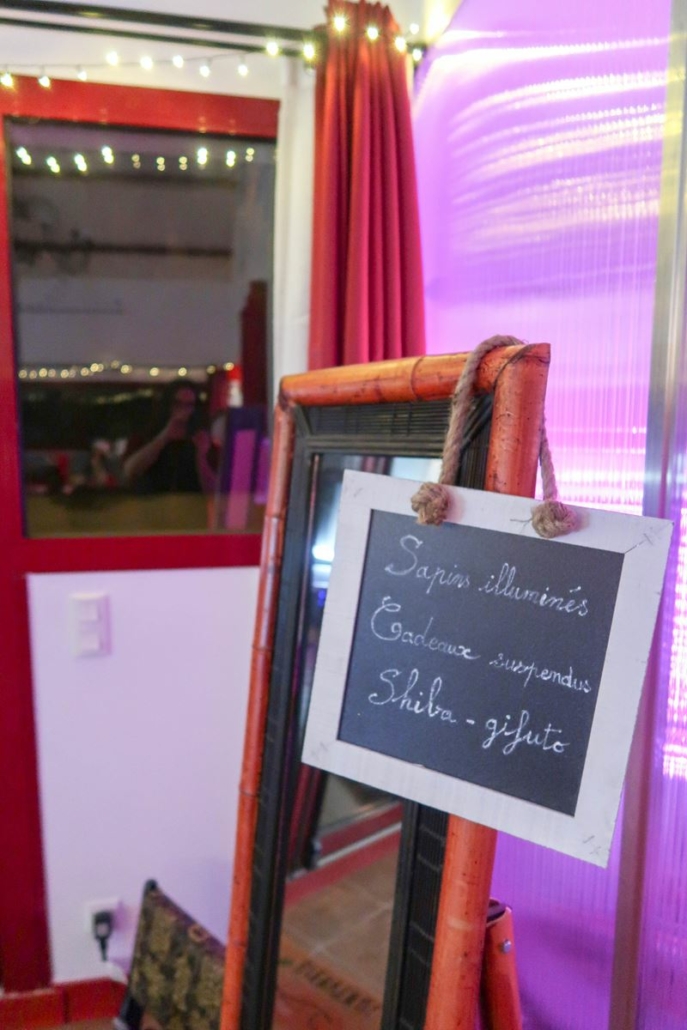 Sapins illuminés
Cadeaux suspendus
Shiba - gifuto